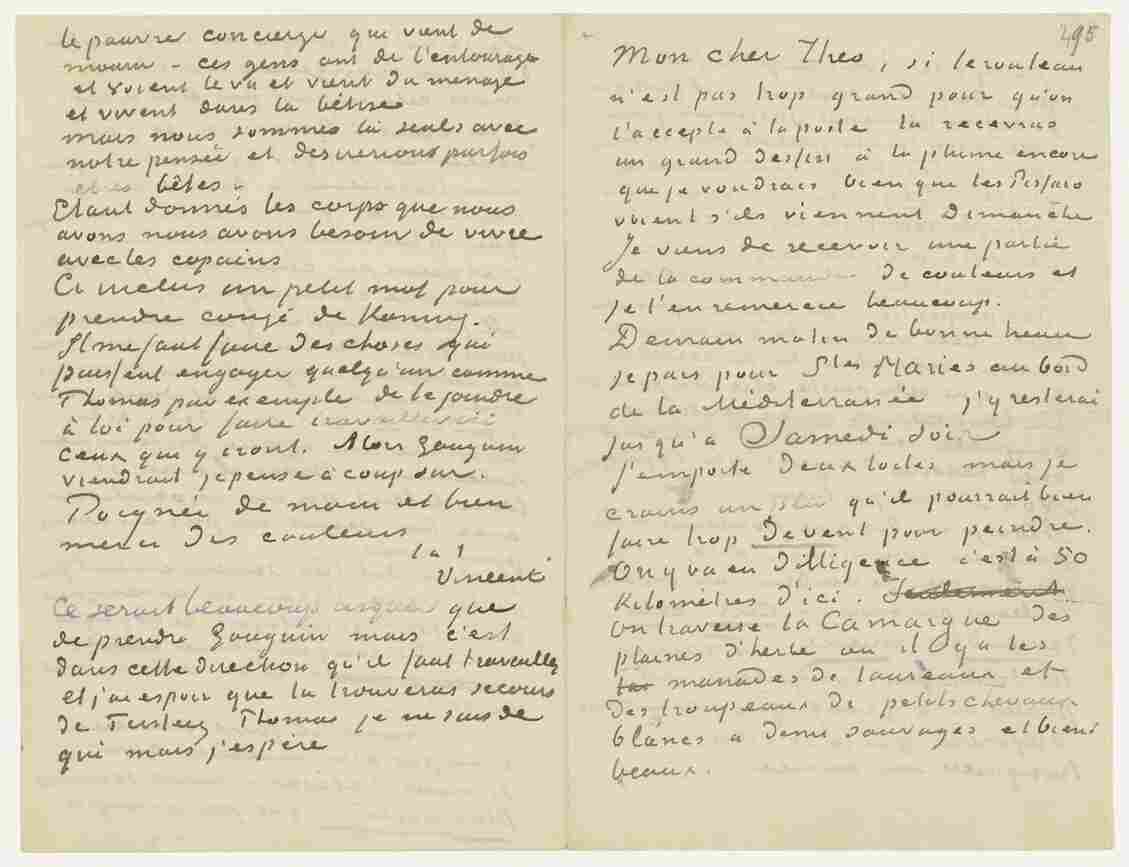 le pauvre concierge qui vient de
mourir – ces gens ont de l'entourage
et voient le va et vient du menage
et vivent dans la bêtise
mais nous sommes là seuls avec
notre pensée et desirerions parfois
etres bêtes.
Etant donnés les corps que nous
avons nous avons besoin de vivre
avec les copains
Ci inclus un petit mot pour
prendre congé de Koning.
Il me faut faire des choses qui
puissent engager quelqu'un comme
Thomas par exemple de se joindre
à toi pour faire travailler ici
ceux qui y iront. Alors Gauguin
viendrait je pense à coup sur.
Poignée de main et bien
merci des couleurs
t. à t.
Vincent
Ce serait beaucoup risquer que
de prendre Gauguin mais c'est
dans cette direction qu'il faut travailler
et j'ai espoir que tu trouveras secours
de Tersteeg Thomas je ne sais de
qui mais j'espère
295
Mon cher Theo, si le rouleau
n'est pas trop grand pour qu'on
l'accepte à la poste tu recevras
un grand dessin à la plume encore
que je voudrais bien que les Pissaro
voient s'ils viennent Dimanche
Je viens de recevoir une partie
de la commande de couleurs et
je t'en remercie beaucoup.
Demain matin de bonne heure
je pars pour Stes Maries au bord
de la Méditerranée j'y resterai
jusqu'à Samedi soir
J'emporte deux toiles mais je
crains un peu qu'il pourrait bien
faire trop de vent pour peindre.
On y va en dilligence c'est à 50
kilomètres d'ici. Seulement
On traverse la Camargue des
plaines d'herbe où il y a les
manades de taureaux et
des troupeaux de petits chevaux
blancs a demi sauvages et bien
beaux.